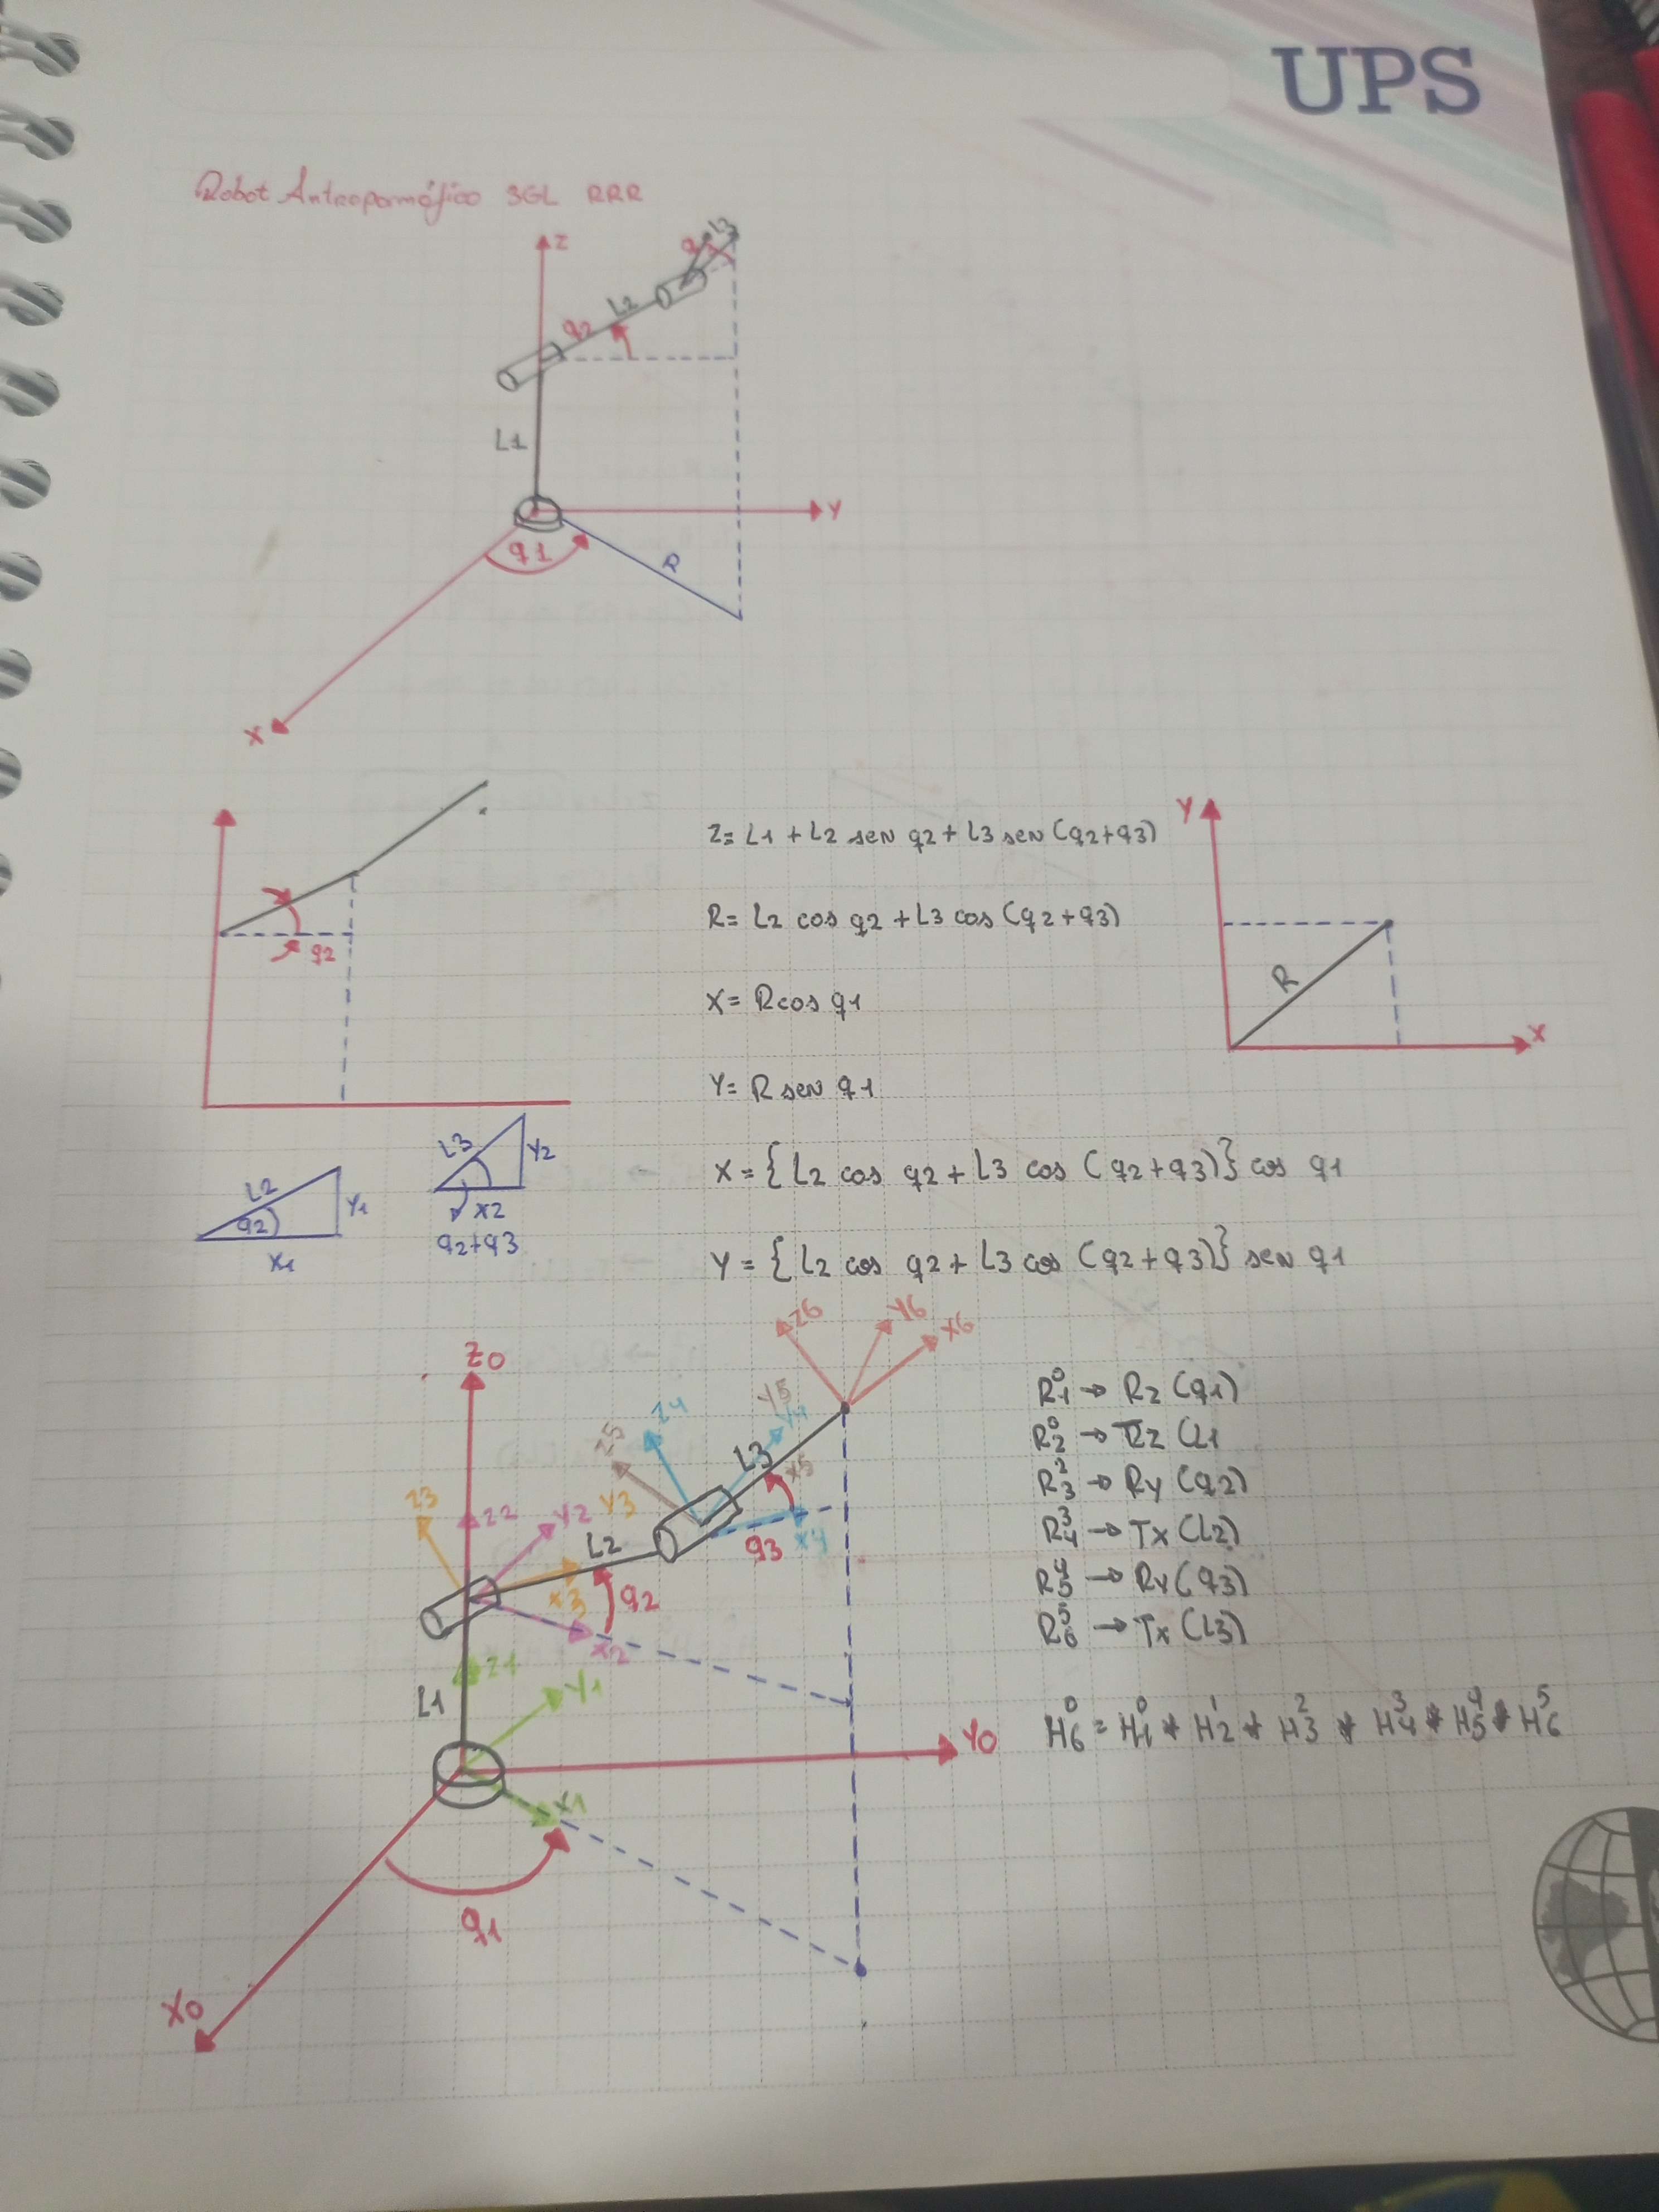 UPS
Robot Antropormófico 3GL RRR
Z
L3
q2
L2
L1
Y
q1
R
X
q2
Z= L1 + L2 sen q2 + L3 sen (q2+q3)
R= L2 cos q2 + L3 cos (q2+q3)
X= R cos q1
Y= R sen q1
X = {L2 cos q2 + L3 cos (q2+q3)} cos q1
Y = {L2 cos q2 + L3 cos (q2+q3)} sen q1
Y
R
X
L2
q2
Y1
X1
L3
Y2
X2
q2+q3
Z0
Z6
Y6
X6
Z5
Z4
Y5
Y4
L3
X5
X4
q3
Z3
Z2
Y2
Y3
L2
X3
q2
X2
Z1
L1
Y1
Y0
X1
q1
X0
R⁰₁ → Rz (q1)
R⁰₂ → Tz (L1
R²₃ → Ry (q2)
R³₄ → Tx (L2)
R⁴₅ → Ry (q3)
R⁵₆ → Tx (L3)
H⁰₆ = H⁰₁ * H¹₂ * H²₃ * H³₄ * H⁴₅ * H⁵₆